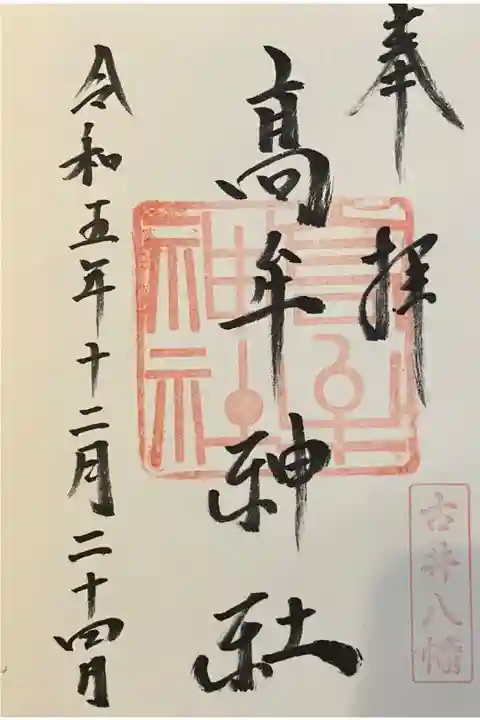 奉拝
古井八幡
高牟神社
令和五年十二月二十四日